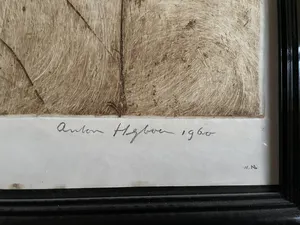 Anton Heyboer 1960